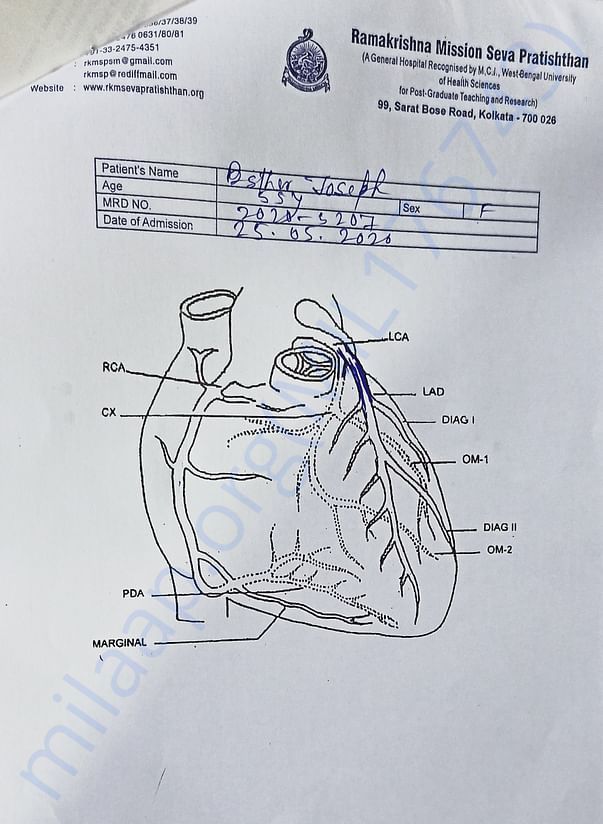 /37/38/39
0631/80/81
-33-2475-4351
: rkmspsm@gmail.com
rkmsp@rediffmail.com
Website : www.rkmsevapratishthan.org
Ramakrishna Mission Seva Pratishthan
(A General Hospital Recognised by M.C.I., West-Bengal University
of Health Sciences
for Post-Graduate Teaching and Research)
99, Sarat Bose Road, Kolkata - 700 026
Patient's Name Esther Joseph
Age 55y Sex F
MRD NO.
Date of Admission 25.05.2020
LCA
RCA
LAD
CX
DIAG I
OM-1
DIAG II
OM-2
PDA
MARGINAL